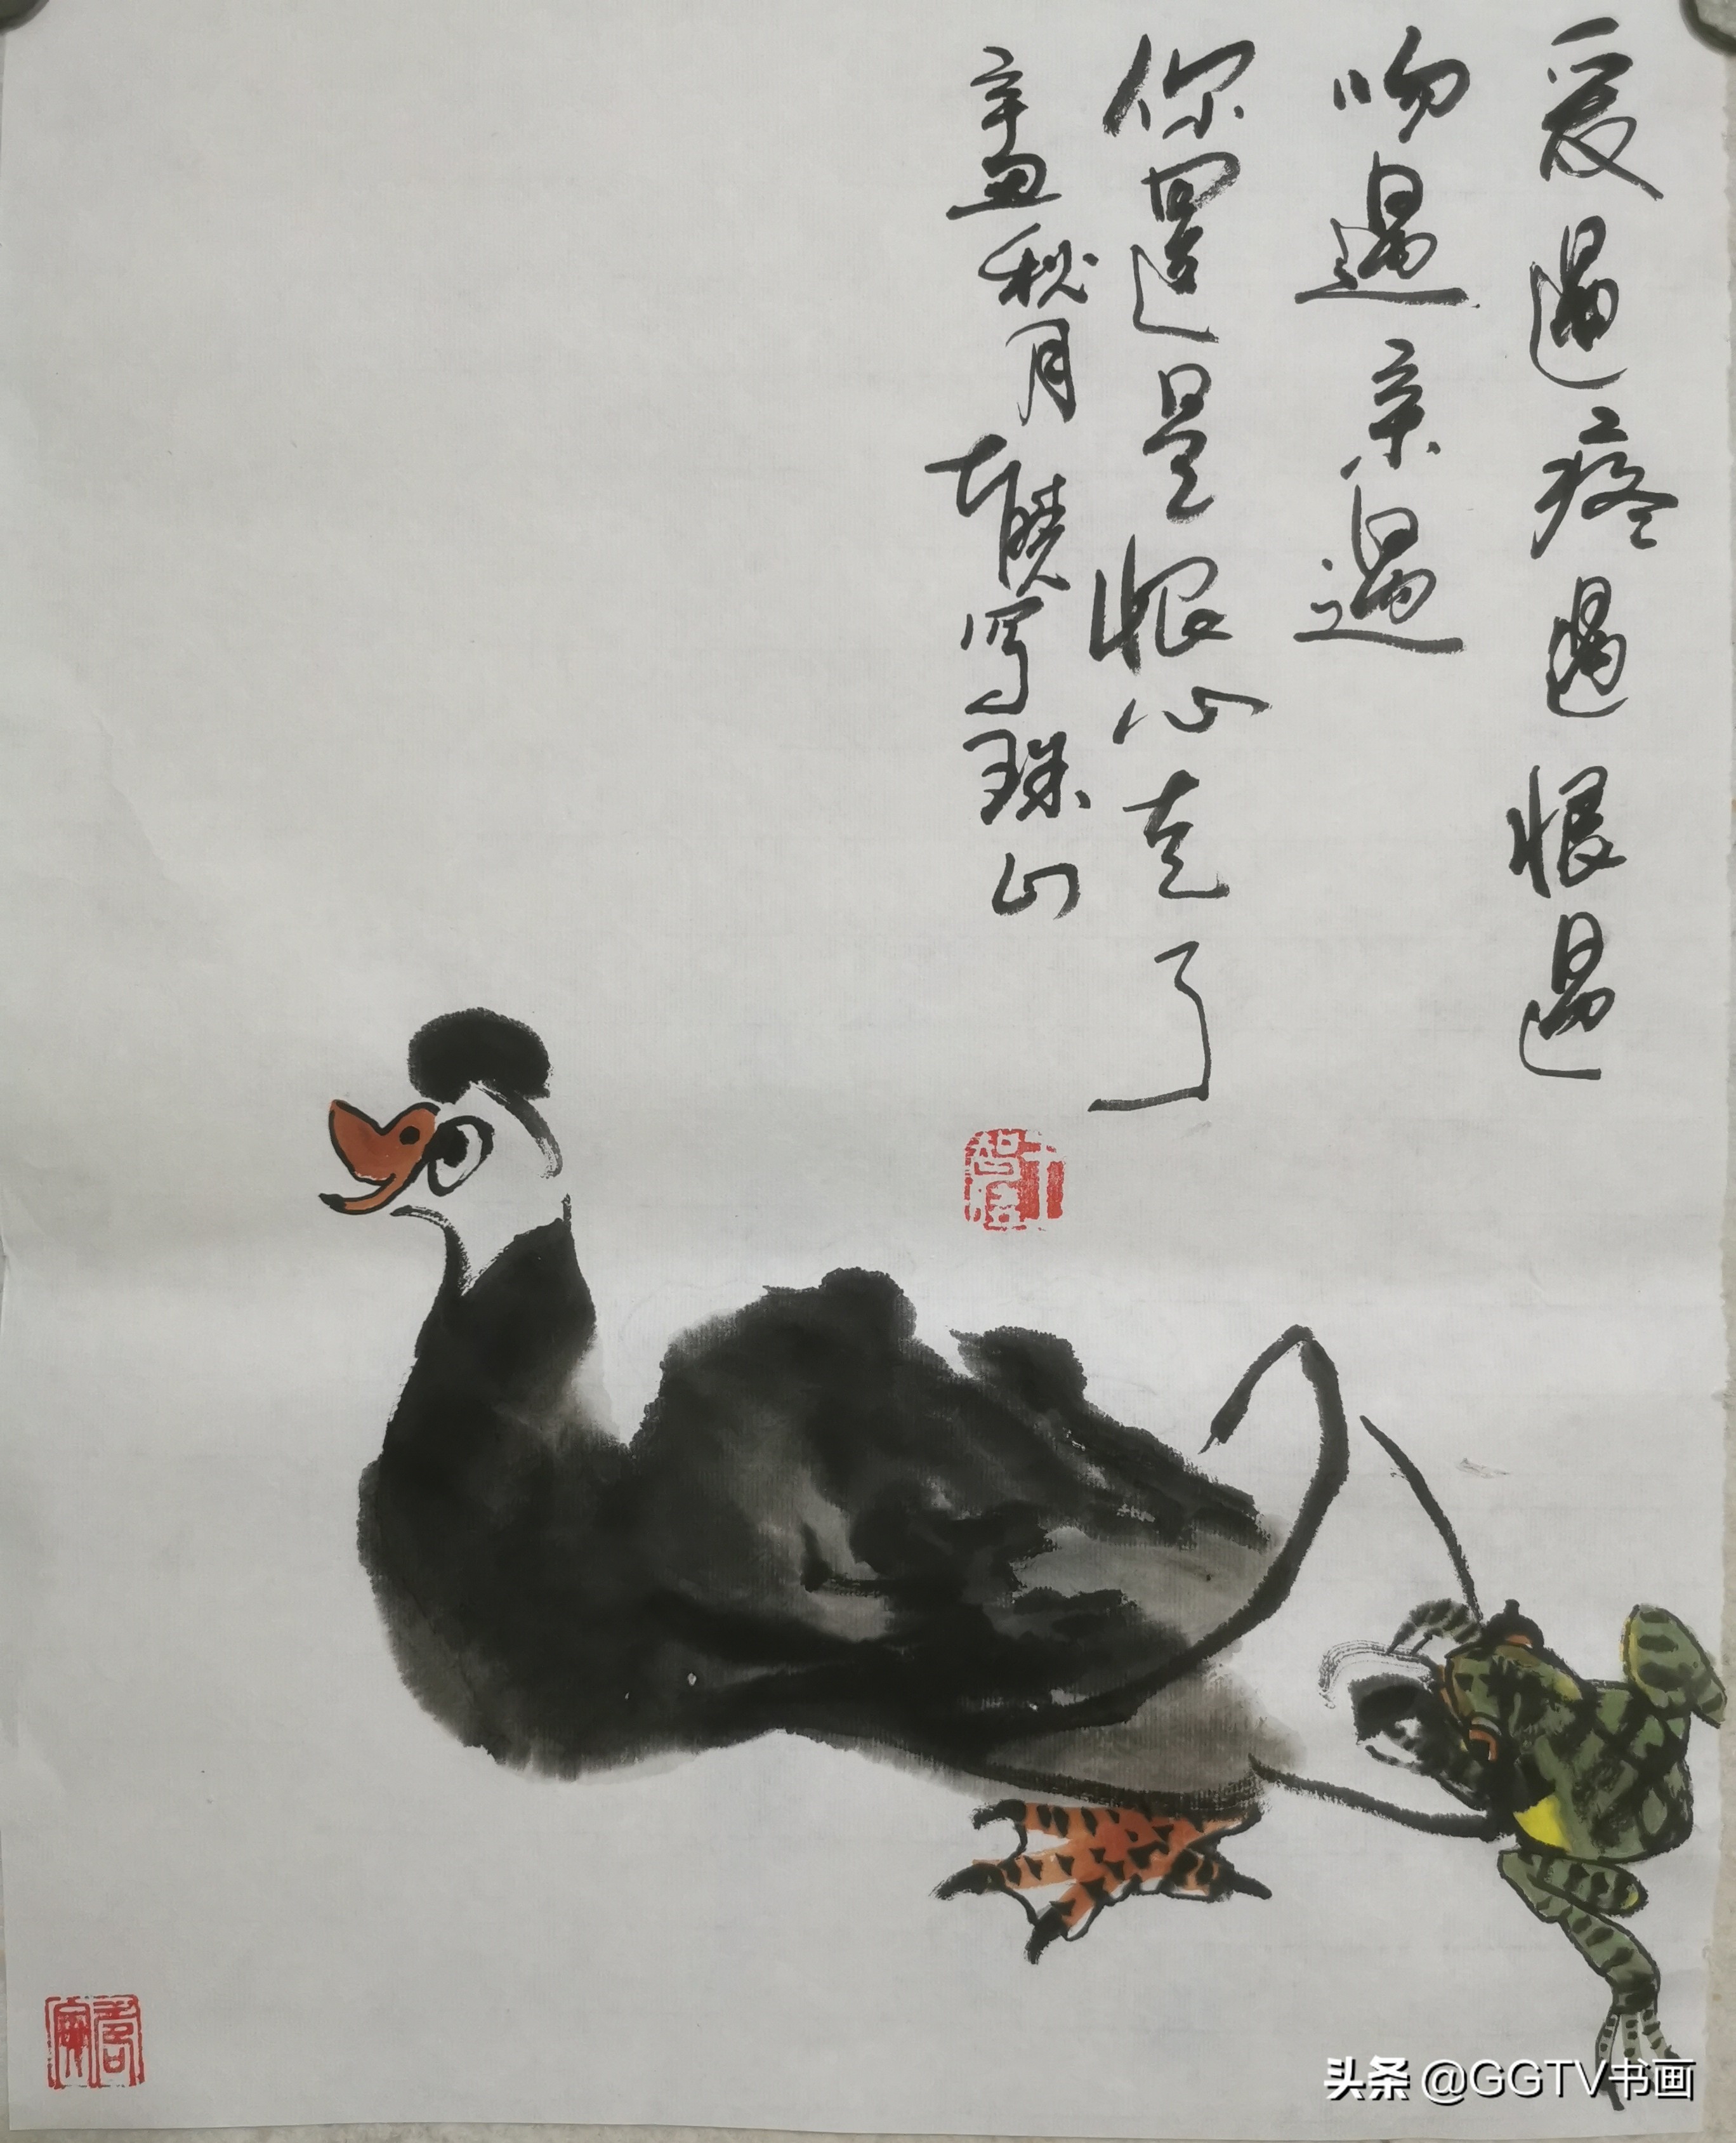 爱过疼过恨过
吻过亲过
你还是狠心走了
辛丑秋月
写珠山
头条 @GGTV书画